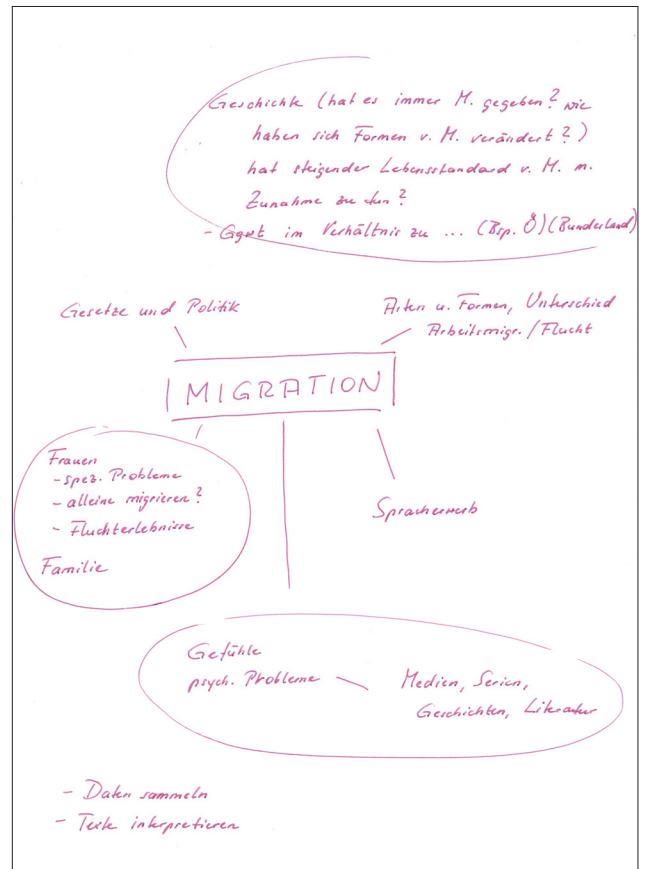 Geschichte (hat es immer M. gegeben? wie
haben sich Formen v. M. verändert?)
hat steigender Lebensstandard v. M. m.
Zunahme zu tun?
- Ggwt im Verhältnis zu ... (Bsp. Ö) (Bundesland)
Gesetze und Politik
Arten u. Formen, Unterschied
Arbeitsmigr. / Flucht
MIGRATION
Frauen
- spez. Probleme
- alleine migrieren?
- Fluchterlebnisse
Familie
Spracherwerb
Gefühle
psych. Probleme
Medien, Serien,
Geschichten, Literatur
- Daten sammeln
- Texte interpretieren